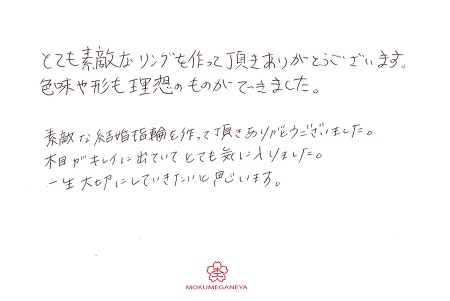 とても素敵なリングを作って頂きありがとうございます。
色味や形も理想のものができました。
素敵な結婚指輪を作って頂きありがとうございました。
木目がキレイに出ていてとても気に入りました。
一生大切にしていきたいと思います。
MOKUMEGANEYA